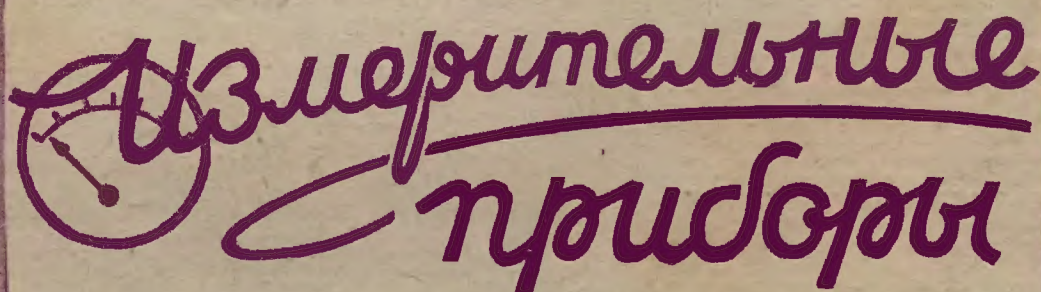 Измерительные
приборы